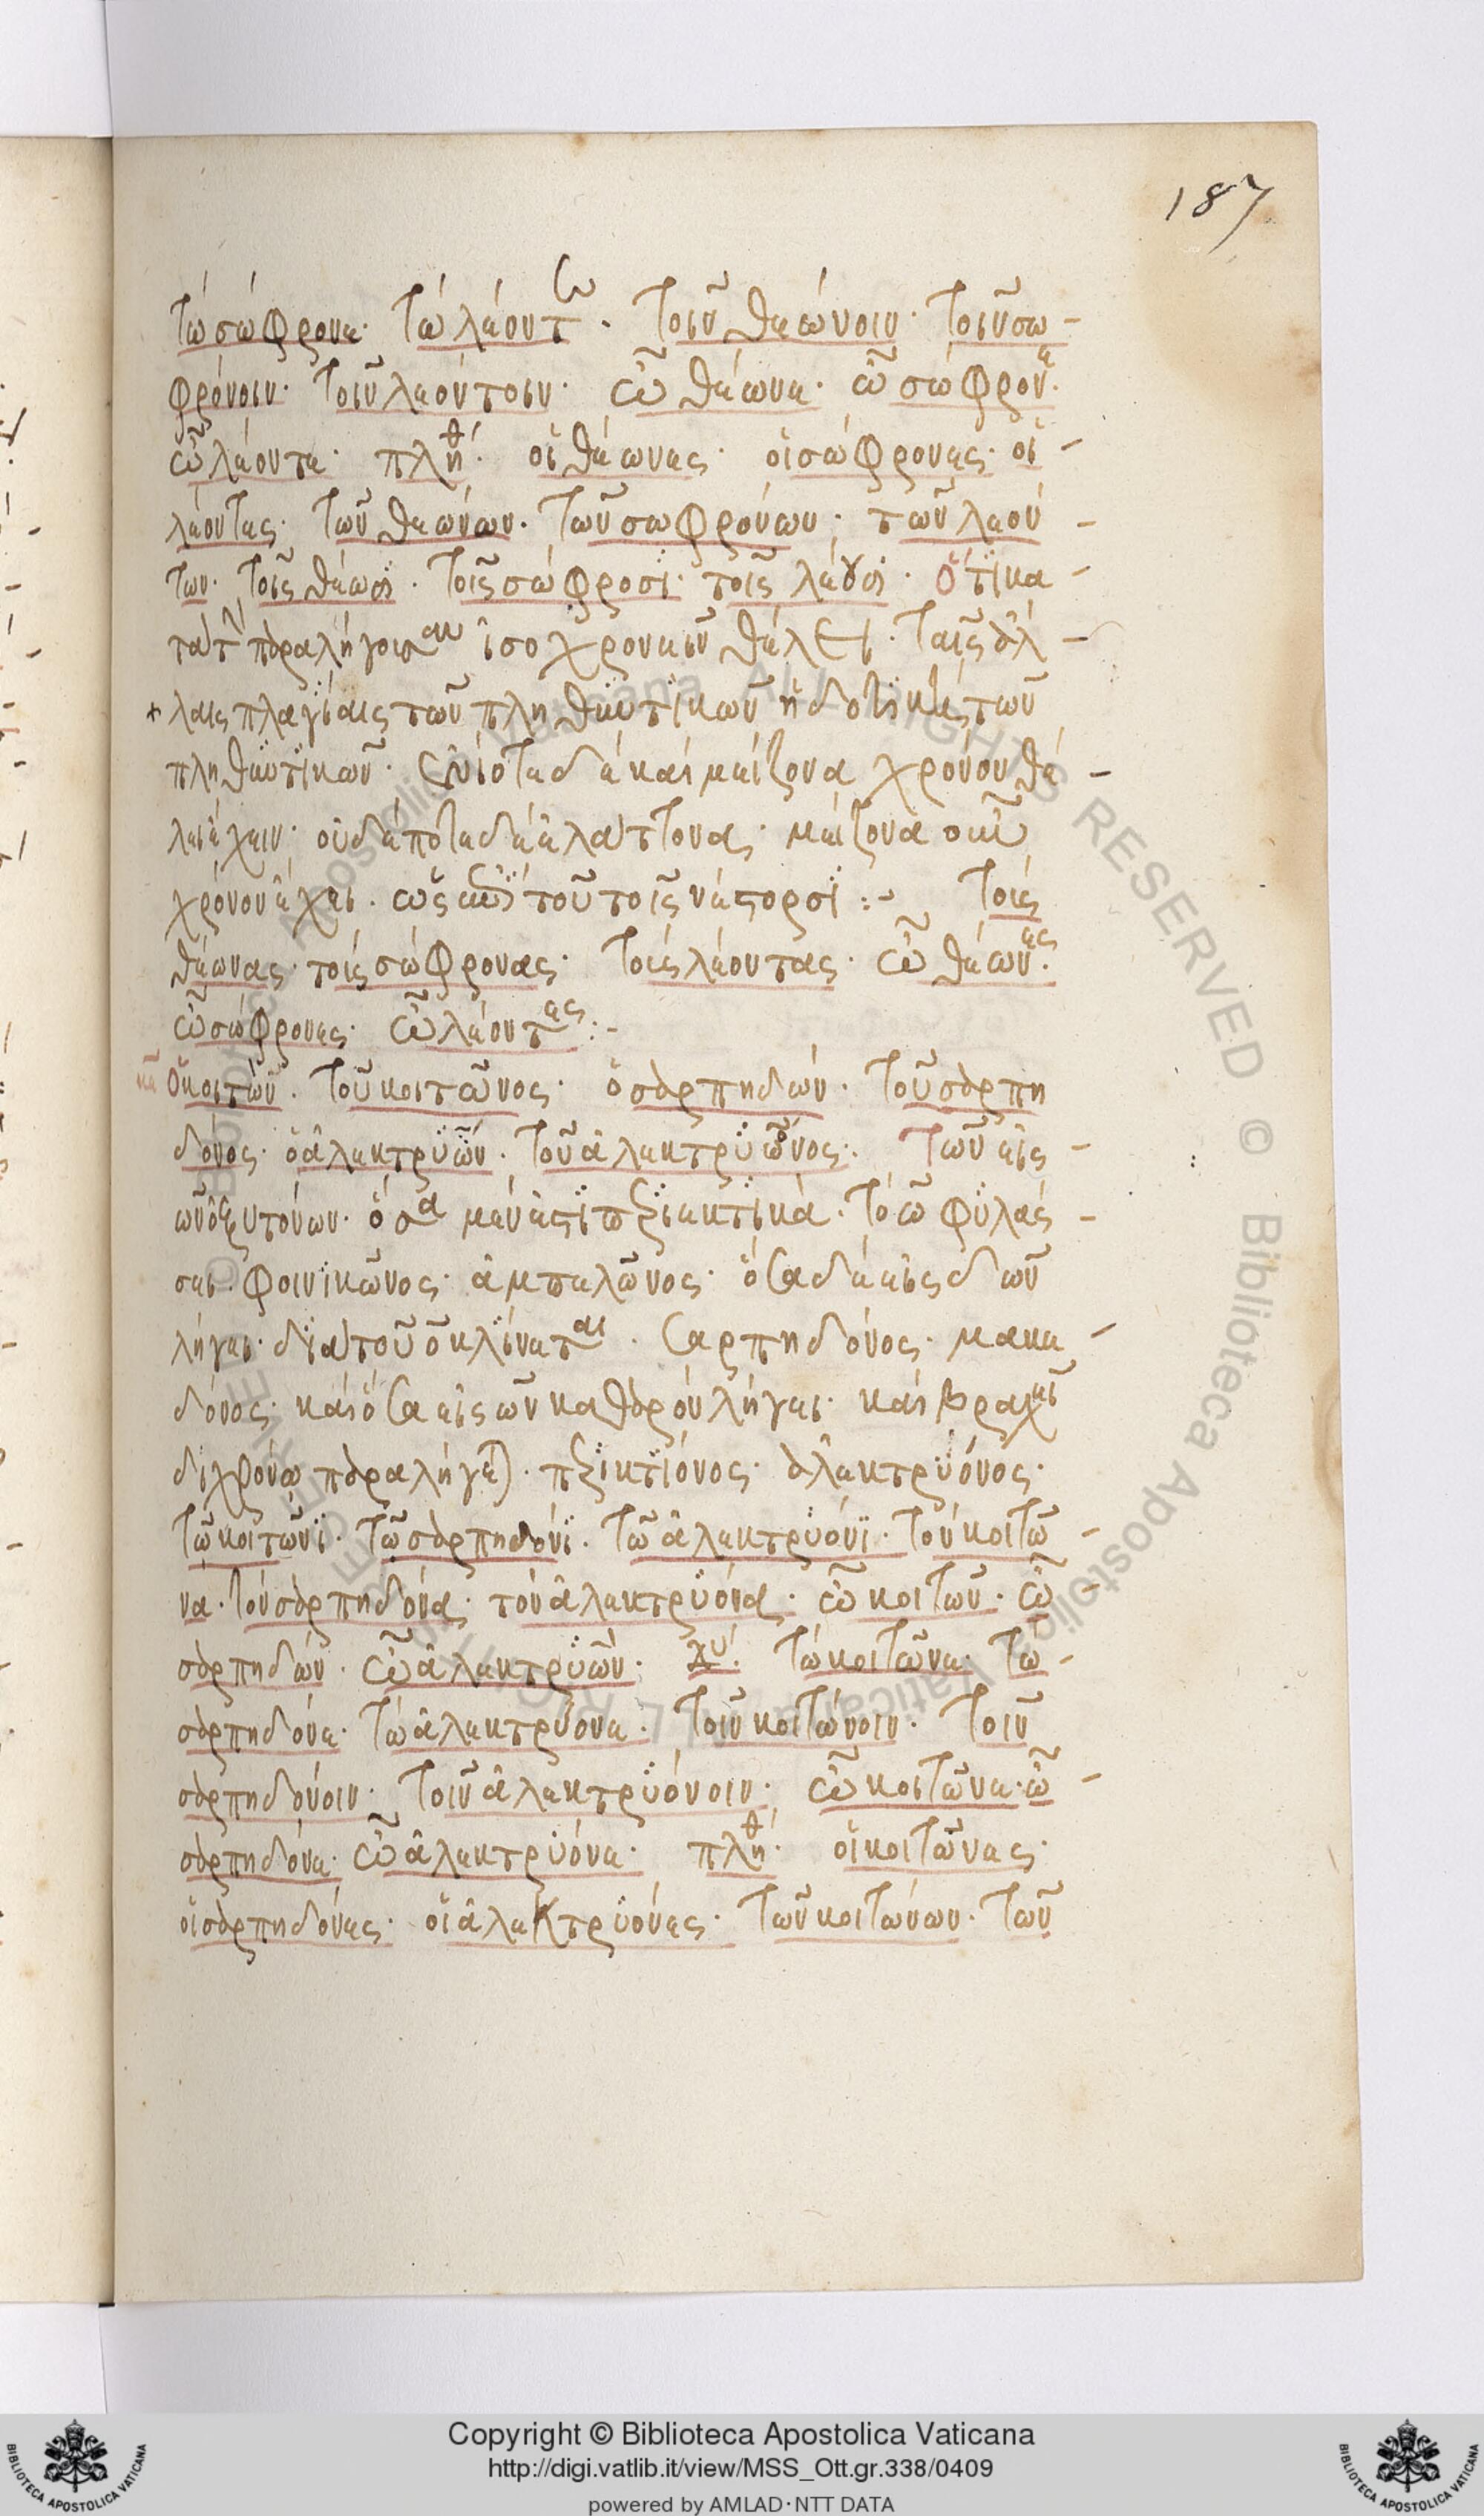 187
τὼ σώφρονε· τὼ λέοντε· τοῖν θεώνοιν· τοῖν σω-
φρόνοιν· τοῖν λεόντοιν· ὦ θέωνε· ὦ σώφρονε·
ὦ λέοντε· πληθ· οἱ θέωνες· οἱ σώφρονες· οἱ
λέοντες· τῶν θεώνων· τῶν σωφρόνων· τῶν λεόν-
των· τοῖς θέωσϊ· τοῖς σώφροσϊ· τοῖς λέουσϊ· ὅτϊ κα-
τὰ τὴν παραλήγουσαν ἰσοχρονεῖν θέλει· ταῖς ἀλ-
λαις πλαγΐαις τῶν πληθυντϊκῶν ἡ δοτϊκὴ τῶν
πληθυντϊκῶν· ἐνίοτε δὲ καὶ μείζονα χρόνον θέ-
λει ἔχειν· οὐδέποτε δὲ ἐλάττονα· μείζονα οὖν
χρόνον ἔχει· ὡς ἐπὶ τοῦ τοῖς νέστορσϊ :- τοὺς
θέωνας· τοὺς σώφρονας· τοὺς λέοντας· ὦ θέωνες·
ὦ σώφρονες· ὦ λέοντες :-
ὁ κοιτών· τοῦ κοιτῶνος· ὁ σαρπηδών· τοῦ σαρπη
δόνος· ὁ ἀλεκτρϋών· τοῦ ἀλεκτρϋόνος· τῶν εἰς
ων ὀξυτόνων· ὅσα μέν ἐστϊ περϊεκτϊκὰ· τὸ ω φϋλάσ-
σει· φοινϊκῶνος· ἀμπελῶνος· ὅσα δὲ εἰς δων
λήγει· δϊὰ τοῦ ο κλΐνεται· σαρπηδόνος· μακε-
δόνος· καὶ ὅσα εἰς ων καθαρὸν λήγει· καὶ βραχεῖ
διχρόνω παραλήγεται· περϊκτϊόνος· ἀλεκτρϋόνος·
τῶ κοιτῶνϊ· τῶ σαρπηδόνϊ· τῶ ἀλεκτρϋόνϊ· τὸν κοιτῶ-
να· τὸν σαρπηδόνα· τὸν ἀλεκτρϋόνα· ὦ κοιτών· ὦ-
σαρπηδών· ὦ ἀλεκτρϋών· δυ· τὼ κοιτῶνε· τὼ-
σαρπηδόνε· τὼ ἀλεκτρϋόνε· τοῖν κοιτώνοιν· τοῖν
σαρπηδόνοιν· τοῖν ἀλεκτρϋόνοιν· ὦ κοιτῶνε· ὦ-
σαρπηδόνε· ὦ ἀλεκτρυόνε· πληθ· οἱ κοιτῶνες·
οἱ σαρπηδόνες· οἱ ἀλεκτρϋόνες· τῶν κοιτώνων· τῶν
© Biblioteca Apostolica Vaticana ALL RIGHTS RESERVED © Biblioteca Apostolica Vaticana
Copyright © Biblioteca Apostolica Vaticana
http://digi.vatlib.it/view/MSS_Ott.gr.338/0409
powered by AMLAD·NTT DATA
BIBLIOTECA APOSTOLICA VATICANA
BIBLIOTECA APOSTOLICA VATICANA